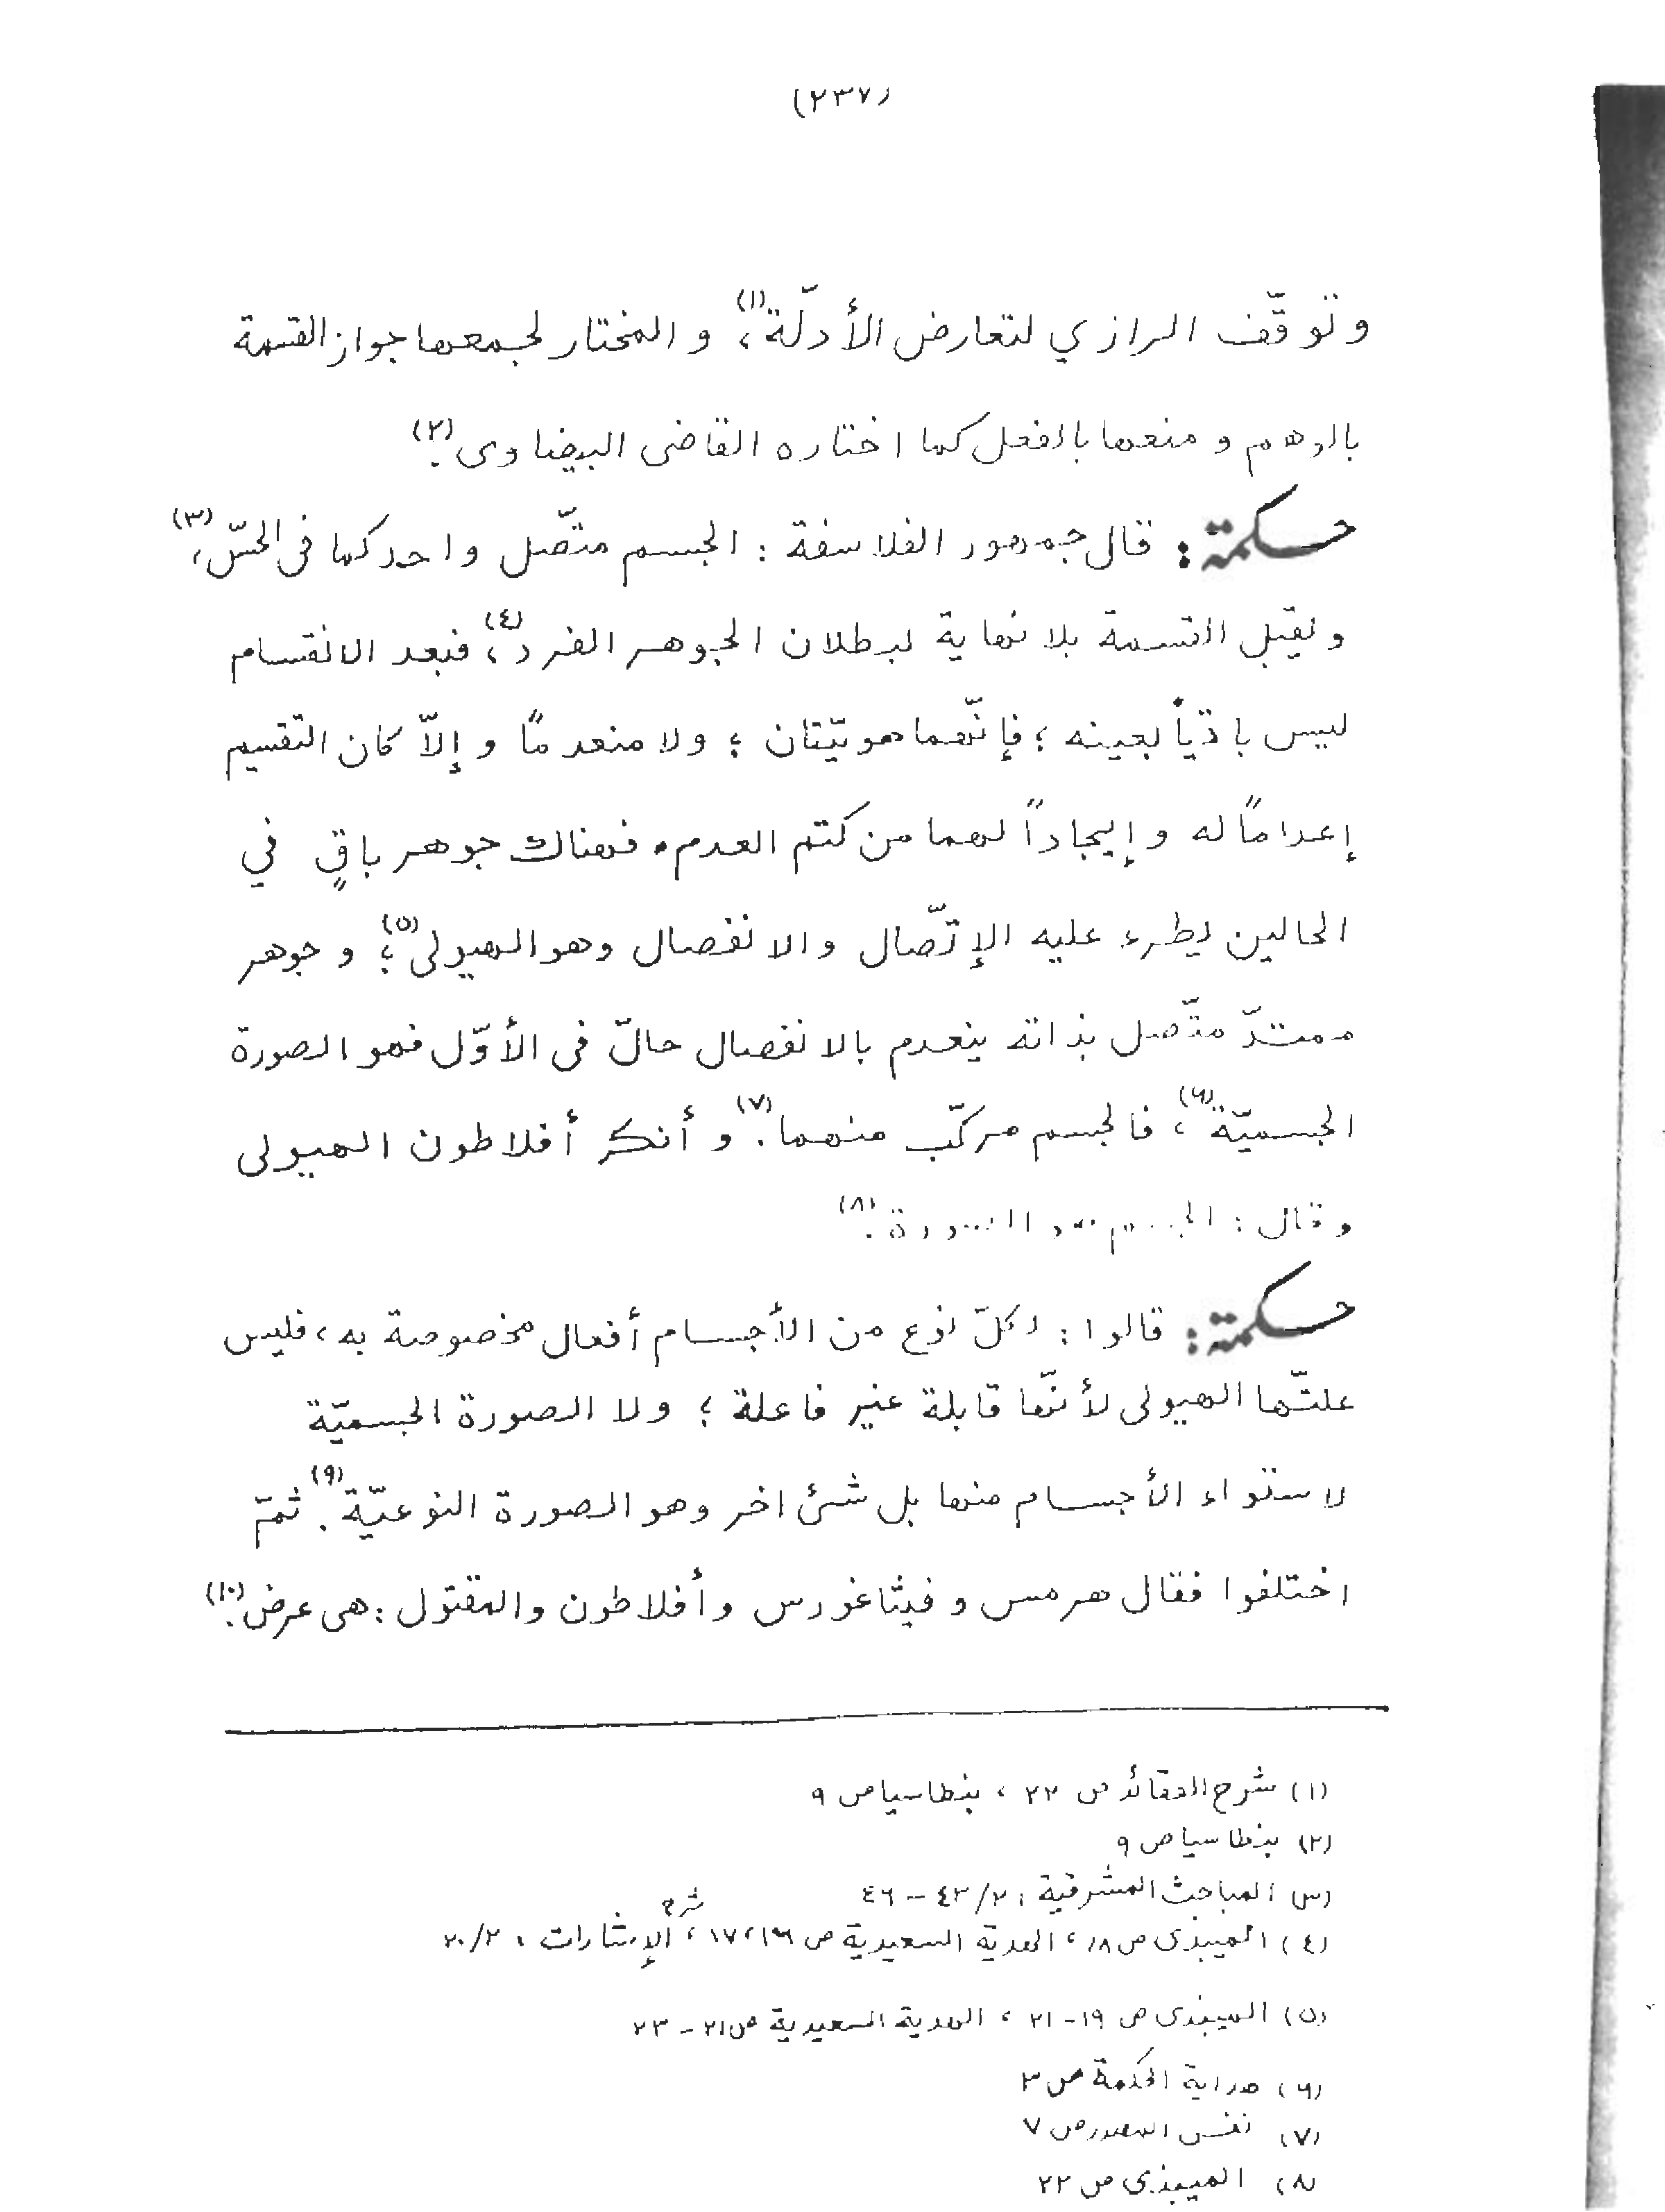 (٢٣٧)
وتوقّف الرازي لتعارض الأدلّة(١)، و المختار لجمعها جواز القسمة
بالوهم و منعها بالفعل كما اختاره القاضى البيضاوى(٢).
حكمة: قال جمهور الفلاسفة: الجسم متّصل واحد كما فى الحسّ(٣)،
ويقبل القسمة بلا نهاية لبطلان الجوهر الفرد(٤)، فبعد الانقسام
ليس باقياً بعينه؛ فإنّهما هويّتان؛ ولا منعدمًا و إلاّ كان التقسيم
إعدامًا له و إيجاداً لهما من كتم العدم. فهناك جوهر باقٍ في
الحالين يطرء عليه الإتّصال والانفصال وهو الهيولى(٥)؛ و جوهر
ممتدّ متّصل بذاته ينعدم بالانفصال حالّ فى الأوّل فهو الصورة
الجسميّة(٦)، فالجسم مركّب منهما(٧). و أنكر أفلاطون الهيولى
وقال: الجسم هو الصورة(٨).
حكمة: قالوا: لكلّ نوع من الأجسام أفعال مخصوصة به، فليس
علتّها الهيولى لأنّها قابلة غير فاعلة؛ ولا الصورة الجسميّة
لاستواء الأجسام منها بل شئ اخر وهو الصورة النوعيّة(٩). ثمّ
اختلفوا فقال هرمس و فيثاغورس وأفلاطون والمقتول: هى عرض(١٠).
(١) شرح العقائد ص ٢٢، بنطاسيا ص ٩
(٢) بنطاسيا ص ٩
(٣) المباحث المشرقية: ٢/٤٣ - ٤٦
(٤) الميبذى ص ١٨، الهدية السعيدية ص ١٦،١٧، شرح الإشارات: ٢/٢٠
(٥) الميبذى ص ١٩-٢١، الهدية السعيدية ص ٢١-٢٣
(٦) هداية الحكمة ص ٣
(٧) نفس المصدر ص ٧
(٨) الميبذى ص ٢٢